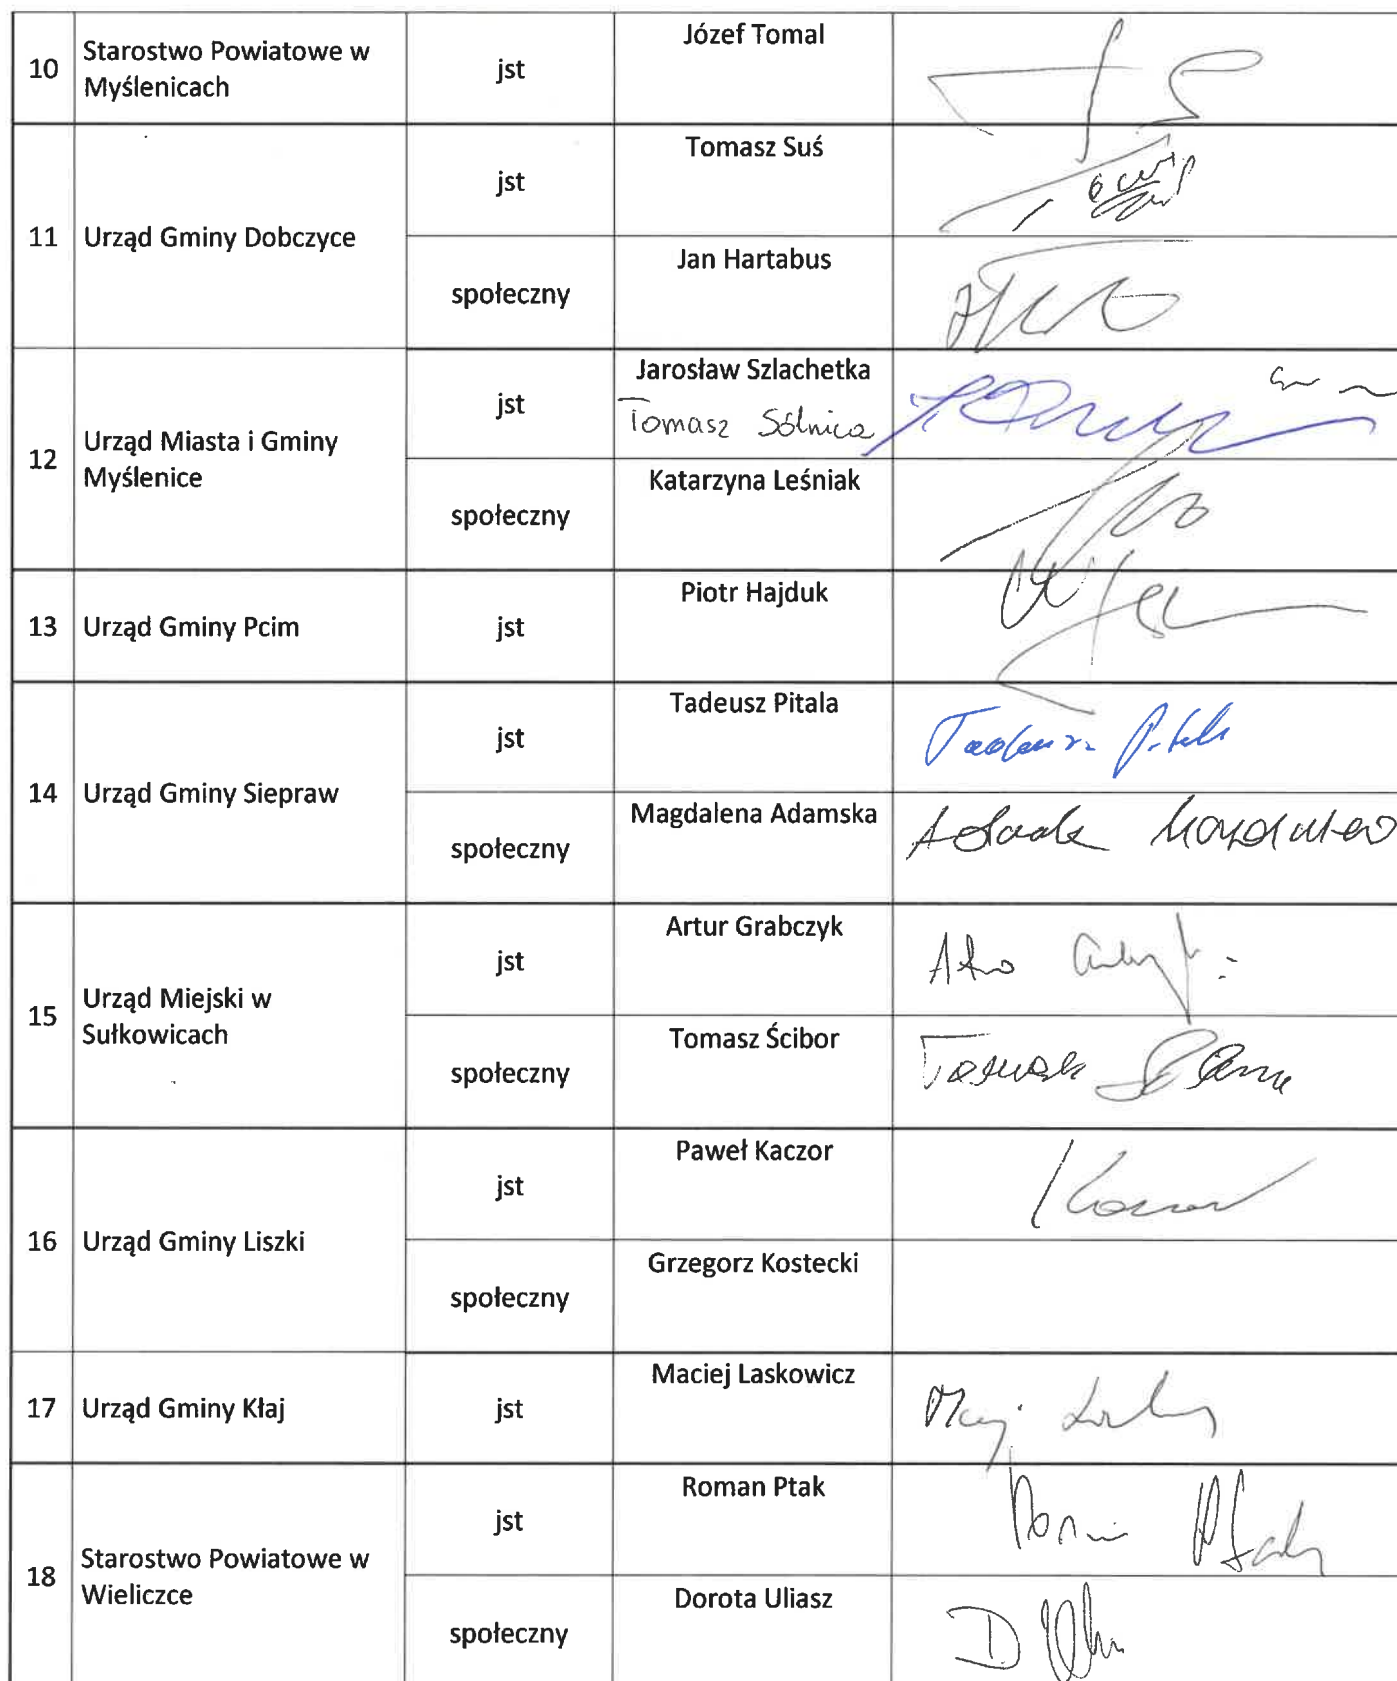 10 Starostwo Powiatowe w Myślenicach jst Józef Tomal
11 Urząd Gminy Dobczyce jst Tomasz Suś
społeczny Jan Hartabus
12 Urząd Miasta i Gminy Myślenice jst Jarosław Szlachetka
Tomasz Sólnica
społeczny Katarzyna Leśniak
13 Urząd Gminy Pcim jst Piotr Hajduk
14 Urząd Gminy Siepraw jst Tadeusz Pitala
społeczny Magdalena Adamska
15 Urząd Miejski w Sułkowicach jst Artur Grabczyk
społeczny Tomasz Ścibor
16 Urząd Gminy Liszki jst Paweł Kaczor
społeczny Grzegorz Kostecki
17 Urząd Gminy Kłaj jst Maciej Laskowicz
18 Starostwo Powiatowe w Wieliczce jst Roman Ptak
społeczny Dorota Uliasz